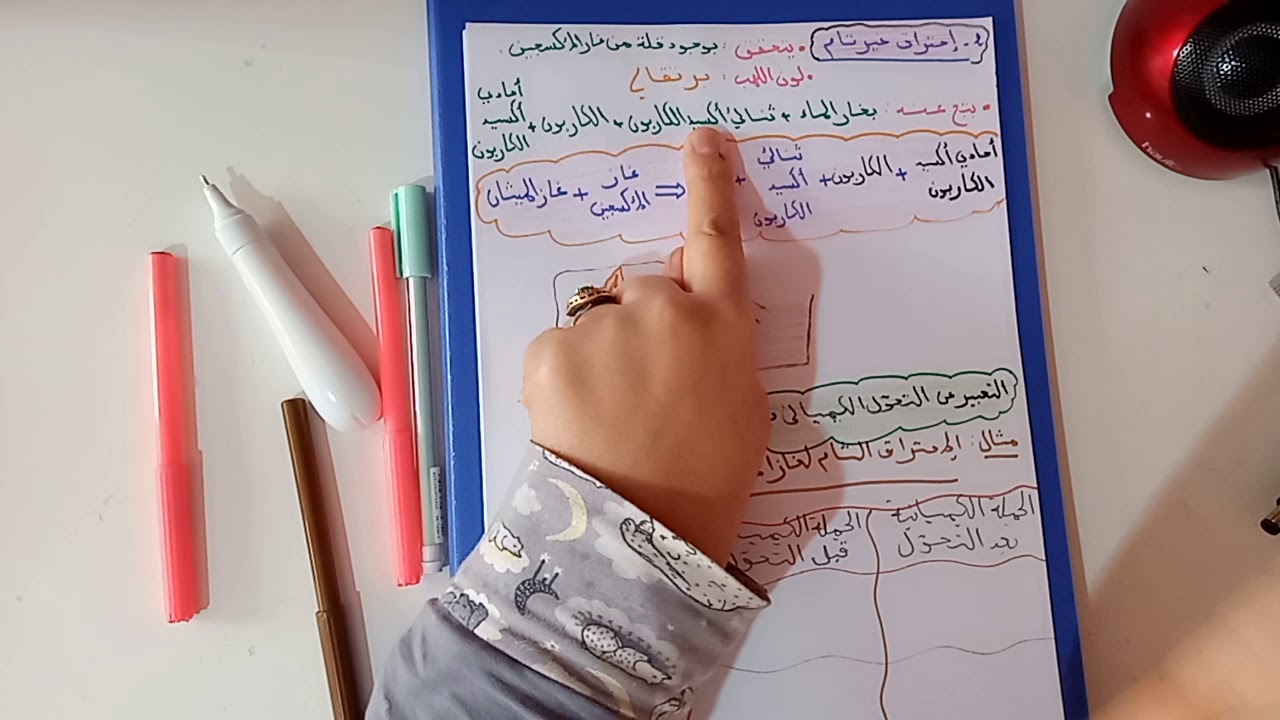 2- إحتراق غير تام
• يتحقق : بوجود قلة من غاز الأكسجين.
• لون اللهب : برتقالي
• ينتج عنه : بخار الماء + ثنائي أكسيد الكاربون + الكاربون + أحادي أكسيد الكاربون
غاز الميثان + غاز الأكسجين ⇒ + ثنائي أكسيد الكاربون + الكاربون + أحادي أكسيد الكاربون
التعبير عن التحوّل الكيميائي
مثال : الإحتراق التام لغاز
الجملة الكيميائية بعد التحوّل
الجملة قبل التحوّل